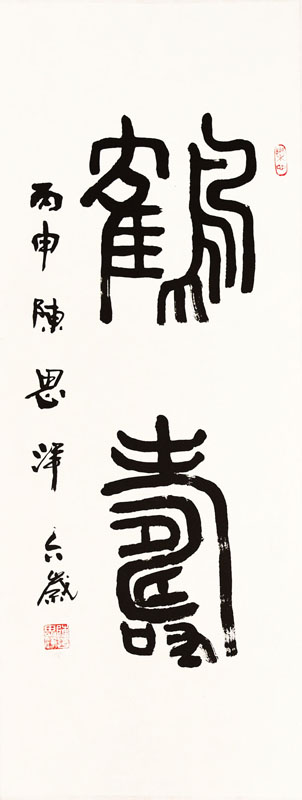 鶴壽
丙申陳思澤六歲